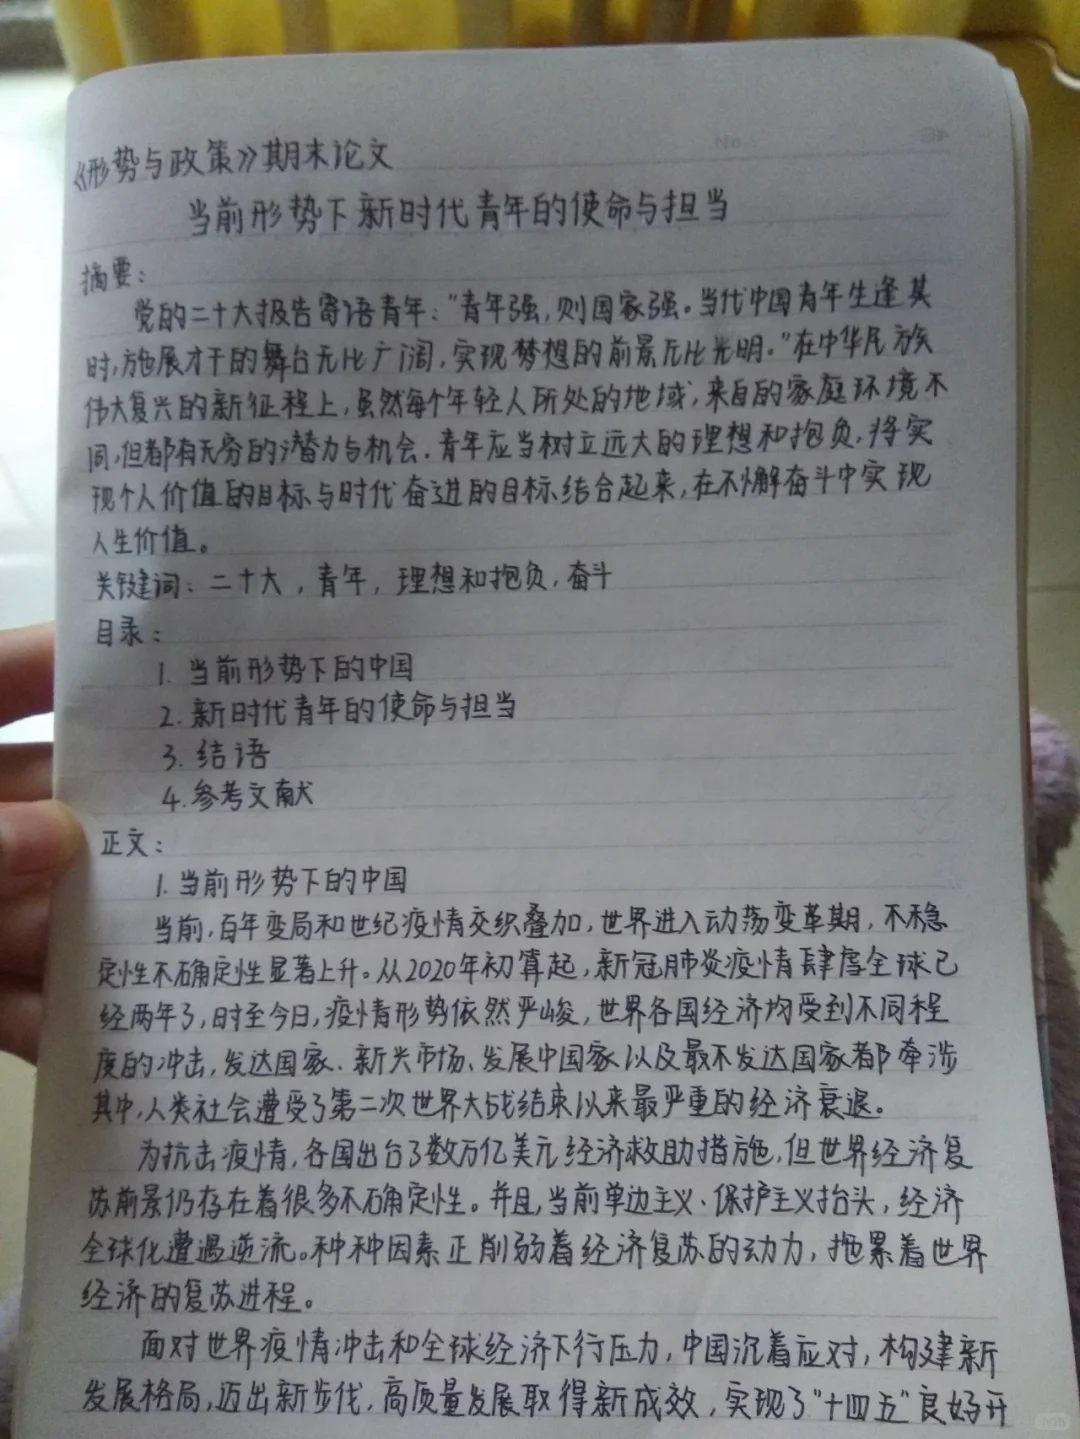 《形势与政策》期末论文
当前形势下新时代青年的使命与担当
摘要：
党的二十大报告寄语青年：“青年强，则国家强。当代中国青年生逢其
时，施展才干的舞台无比广阔，实现梦想的前景无比光明。”在中华民族
伟大复兴的新征程上，虽然每个年轻人所处的地域，来自的家庭环境不
同，但都有无穷的潜力与机会。青年应当树立远大的理想和抱负，将实
现个人价值的目标与时代奋进的目标结合起来，在不懈奋斗中实现
人生价值。
关键词：二十大，青年，理想和抱负，奋斗
目录：
1. 当前形势下的中国
2. 新时代青年的使命与担当
3. 结语
4. 参考文献
正文：
1. 当前形势下的中国
当前，百年变局和世纪疫情交织叠加，世界进入动荡变革期，不稳
定性不确定性显著上升。从2020年初算起，新冠肺炎疫情肆虐全球已
经两年了，时至今日，疫情形势依然严峻，世界各国经济均受到不同程
度的冲击，发达国家、新兴市场、发展中国家以及最不发达国家都牵涉
其中，人类社会遭受了第二次世界大战结束以来最严重的经济衰退。
为抗击疫情，各国出台了数万亿美元经济救助措施，但世界经济复
苏前景仍存在着很多不确定性。并且，当前单边主义、保护主义抬头，经济
全球化遭遇逆流。种种因素正削弱着经济复苏的动力，拖累着世界
经济的复苏进程。
面对世界疫情冲击和全球经济下行压力，中国沉着应对，构建新
发展格局，迈出新步伐，高质量发展取得新成效，实现了“十四五”良好开